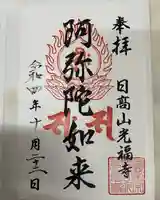 奉拝
日高山光福寺
阿弥陀如来
令和四年十月二十二日